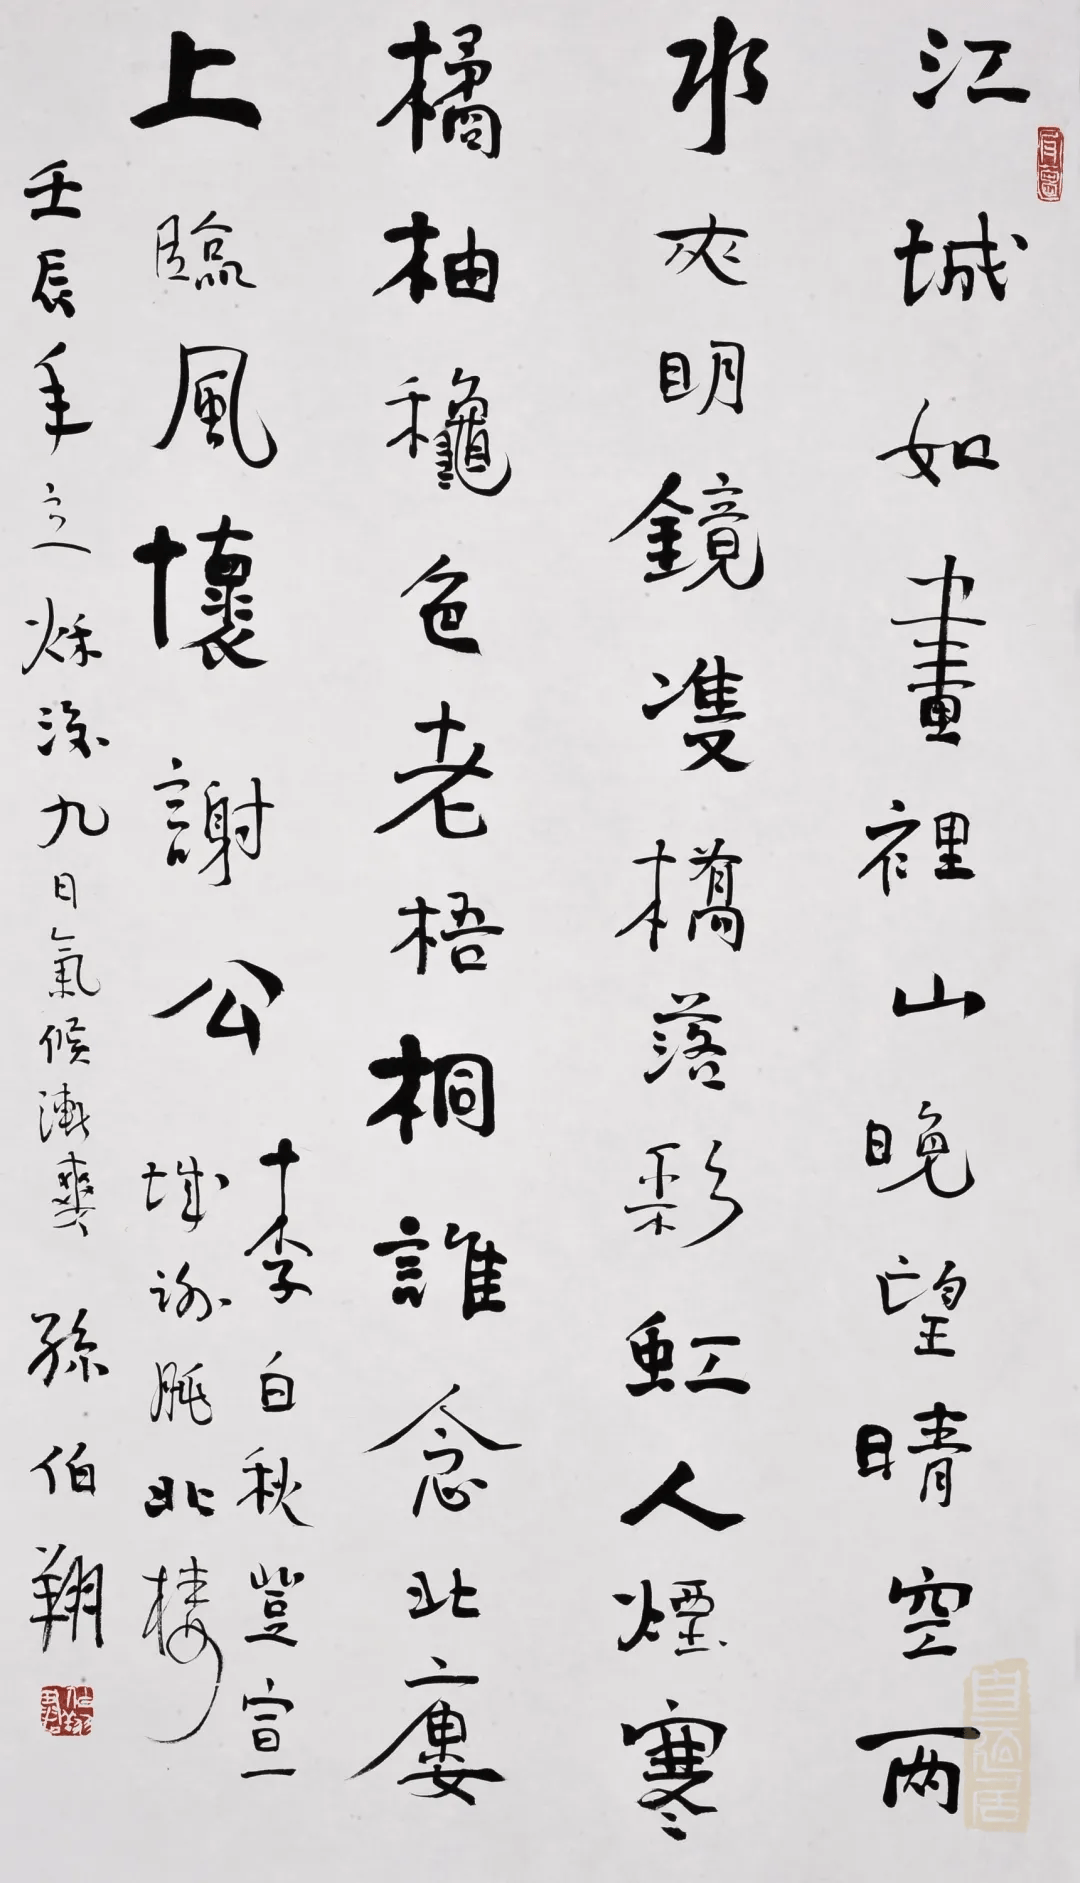 江城如畫裡山晚望晴空兩
水夾明鏡雙橋落彩虹人煙寒
橘柚龝色老梧桐誰念北廔
上臨風懷謝公
李白秋登宣
城謝朓北樓
壬辰年之秌後九日氣候漸爽 孫伯翔